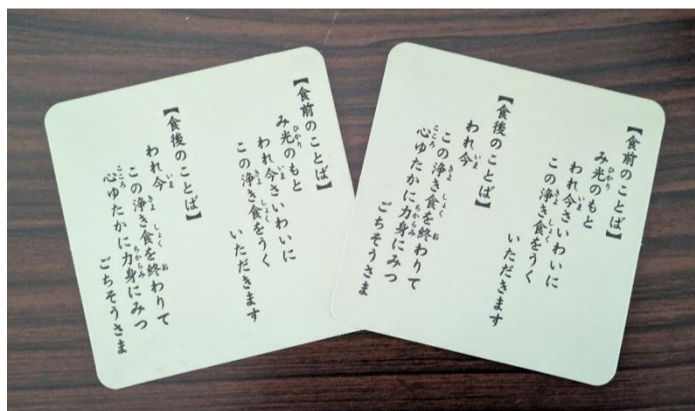 【食前のことば】
み光のもと
われ今さいわいに
この浄き食をうく
いただきます
【食後のことば】
われ今
この浄き食を終わりて
心ゆたかに力身にみつ
ごちそうさま
【食前のことば】
み光のもと
われ今さいわいに
この浄き食をうく
いただきます
【食後のことば】
われ今
この浄き食を終わりて
心ゆたかに力身にみつ
ごちそうさま